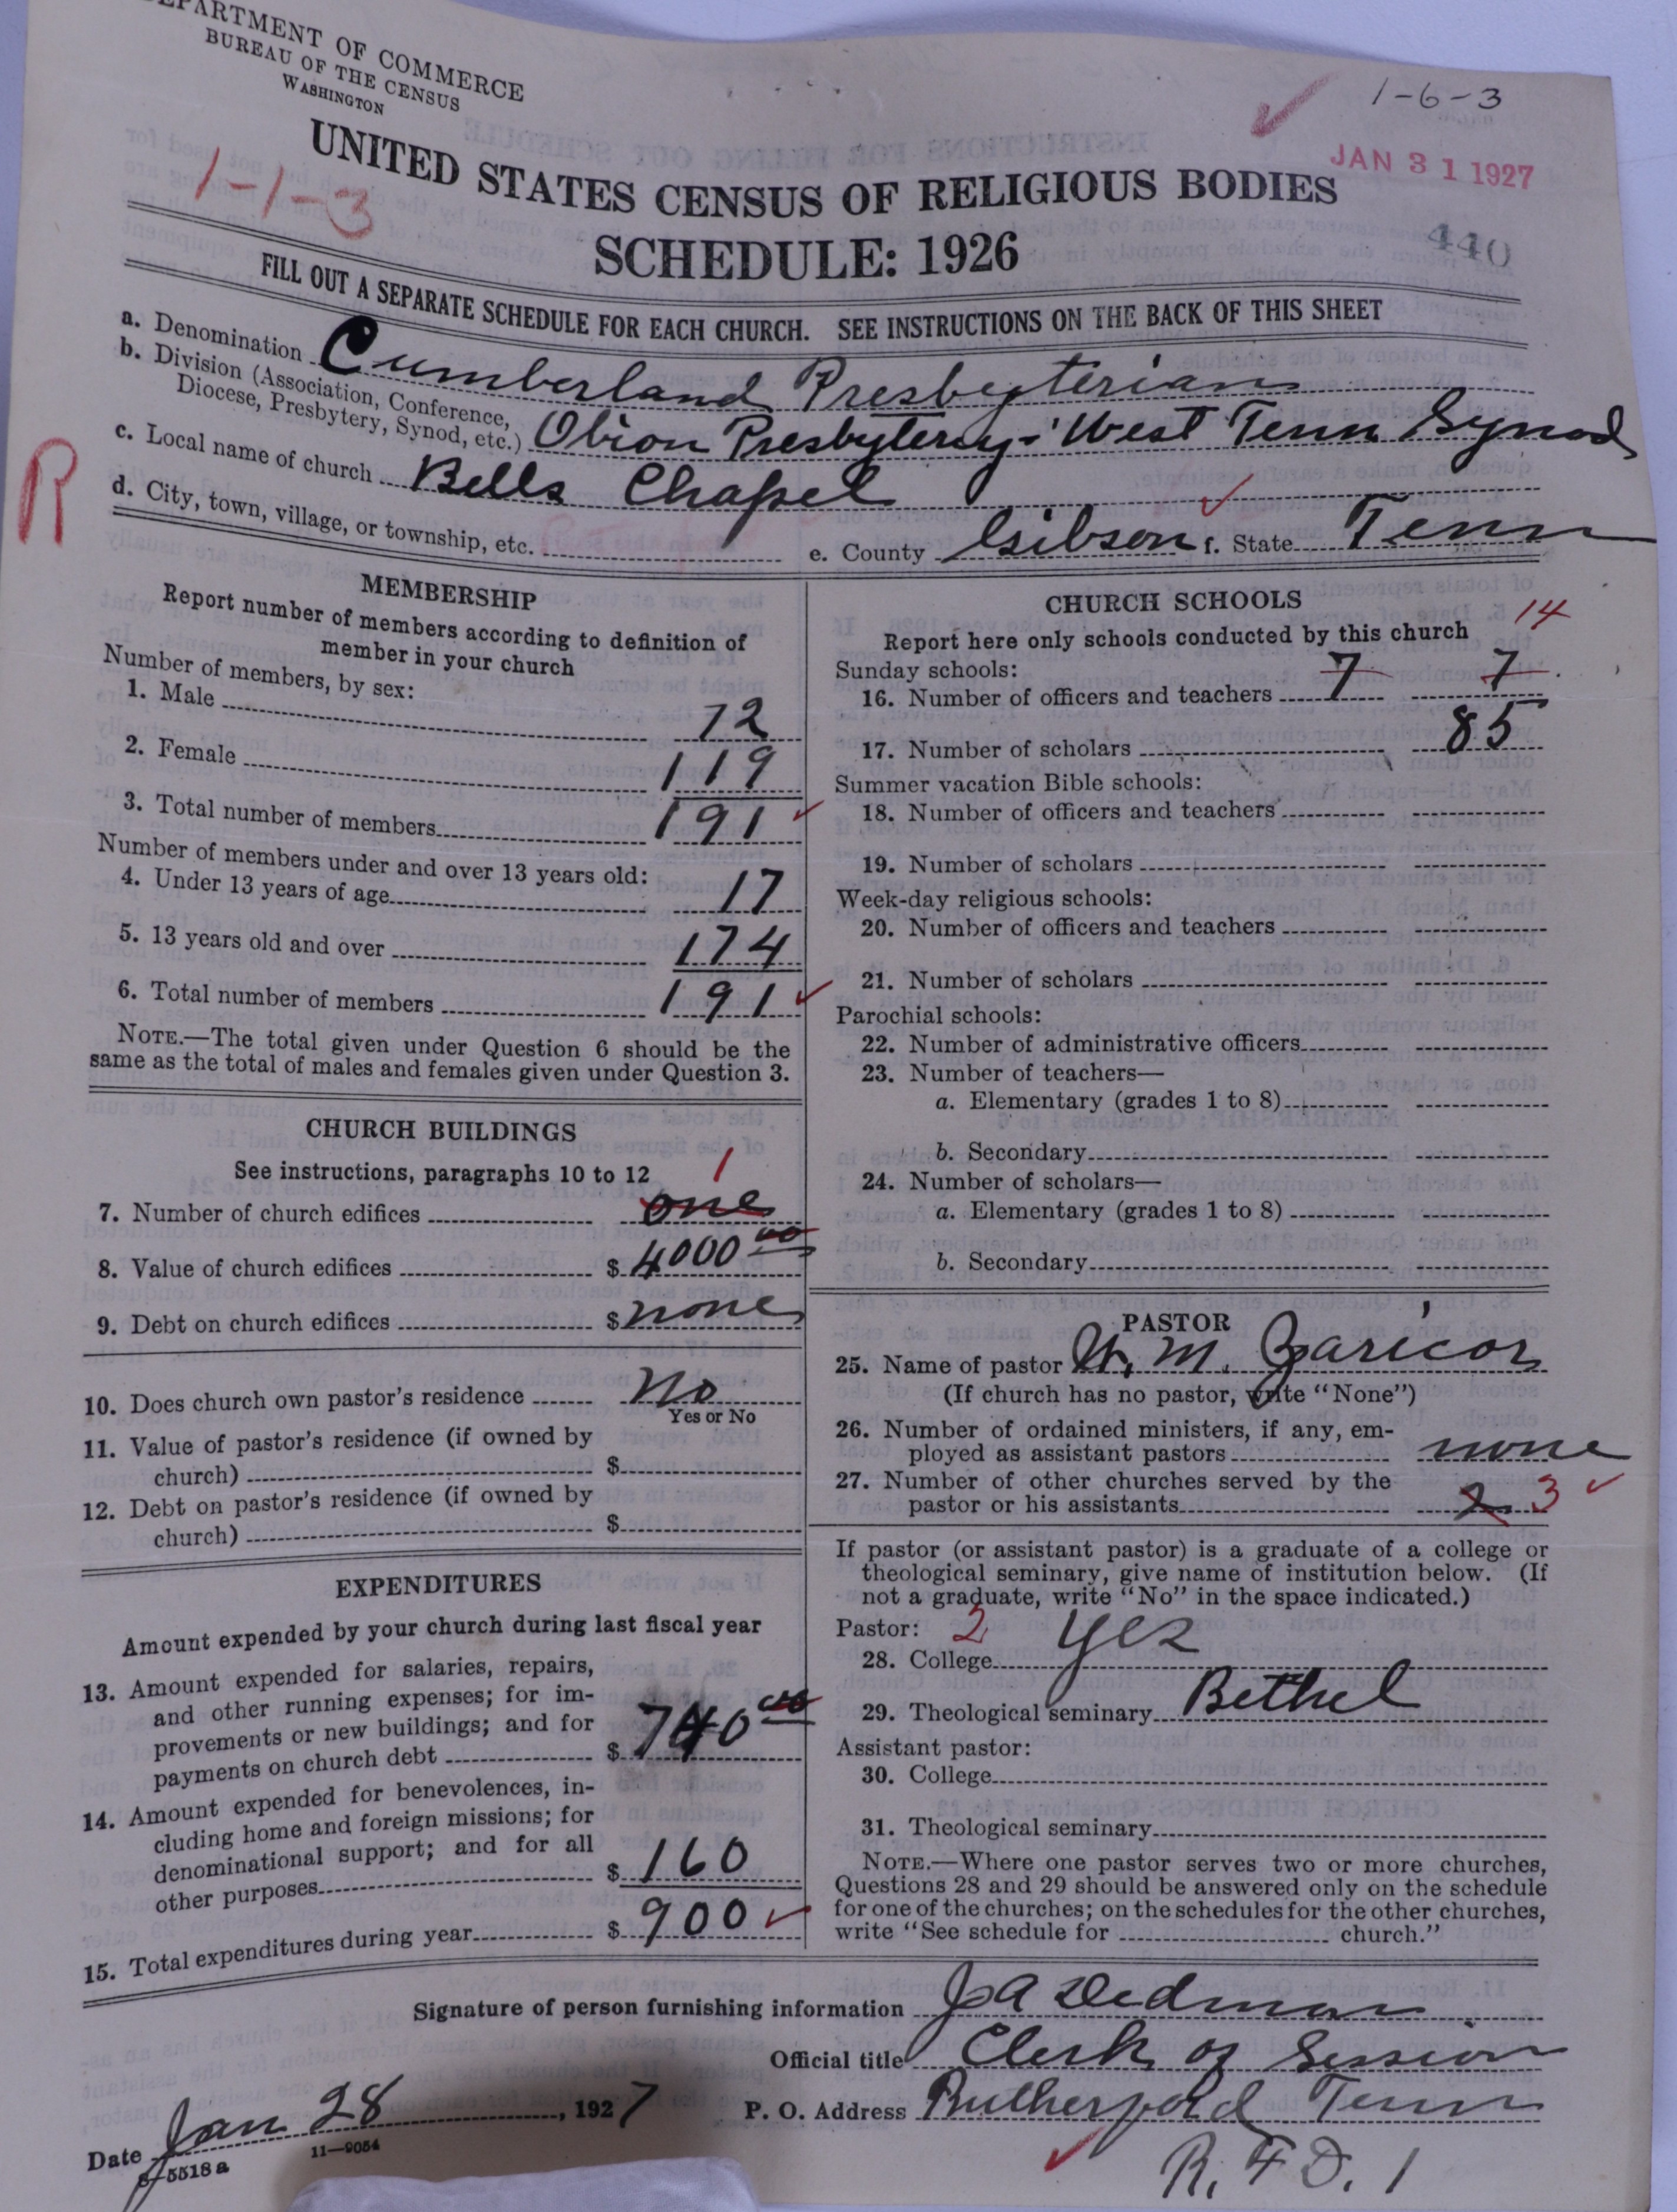 DEPARTMENT OF COMMERCE
BUREAU OF THE CENSUS
WASHINGTON
1-6-3
JAN 31 1927
1-1-3
440
UNITED STATES CENSUS OF RELIGIOUS BODIES
SCHEDULE: 1926
FILL OUT A SEPARATE SCHEDULE FOR EACH CHURCH. SEE INSTRUCTIONS ON THE BACK OF THIS SHEET
a. Denomination Cumberland Presbyterian
b. Division (Association, Conference, Diocese, Presbytery, Synod, etc.) Obion Presbytery - West Tenn Synod
c. Local name of church Bells Chapel
R
d. City, town, village, or township, etc. e. County Gibson f. State Tenn
MEMBERSHIP
Report number of members according to definition of
member in your church
Number of members, by sex:
1. Male 72
2. Female 119
3. Total number of members 191
Number of members under and over 13 years old:
4. Under 13 years of age 17
5. 13 years old and over 174
6. Total number of members 191
NOTE.—The total given under Question 6 should be the
same as the total of males and females given under Question 3.
CHURCH BUILDINGS
See instructions, paragraphs 10 to 12
1
7. Number of church edifices one
8. Value of church edifices $ 4000 00
9. Debt on church edifices $ none
10. Does church own pastor's residence No
Yes or No
11. Value of pastor's residence (if owned by
church) $
12. Debt on pastor's residence (if owned by
church) $
EXPENDITURES
Amount expended by your church during last fiscal year
13. Amount expended for salaries, repairs,
and other running expenses; for im-
provements or new buildings; and for
payments on church debt $ 740 00
14. Amount expended for benevolences, in-
cluding home and foreign missions; for
denominational support; and for all
other purposes $ 160
15. Total expenditures during year $ 900
CHURCH SCHOOLS
14
Report here only schools conducted by this church
Sunday schools:
16. Number of officers and teachers 7 7
17. Number of scholars 85
Summer vacation Bible schools:
18. Number of officers and teachers
19. Number of scholars
Week-day religious schools:
20. Number of officers and teachers
21. Number of scholars
Parochial schools:
22. Number of administrative officers
23. Number of teachers—
a. Elementary (grades 1 to 8)
b. Secondary
24. Number of scholars—
a. Elementary (grades 1 to 8)
b. Secondary
PASTOR
25. Name of pastor W. M. Zaricor
(If church has no pastor, write "None")
26. Number of ordained ministers, if any, em-
ployed as assistant pastors none
27. Number of other churches served by the
pastor or his assistants 2 3
If pastor (or assistant pastor) is a graduate of a college or
theological seminary, give name of institution below. (If
not a graduate, write "No" in the space indicated.)
Pastor: 2
28. College yes
29. Theological seminary Bethel
Assistant pastor:
30. College
31. Theological seminary
NOTE.—Where one pastor serves two or more churches,
Questions 28 and 29 should be answered only on the schedule
for one of the churches; on the schedules for the other churches,
write "See schedule for church."
Signature of person furnishing information J A Dedman
Official title Clerk of Session
Date Jan 28, 1927 P. O. Address Rutherford Tenn
8-5518a 11—9054
R. F D. 1